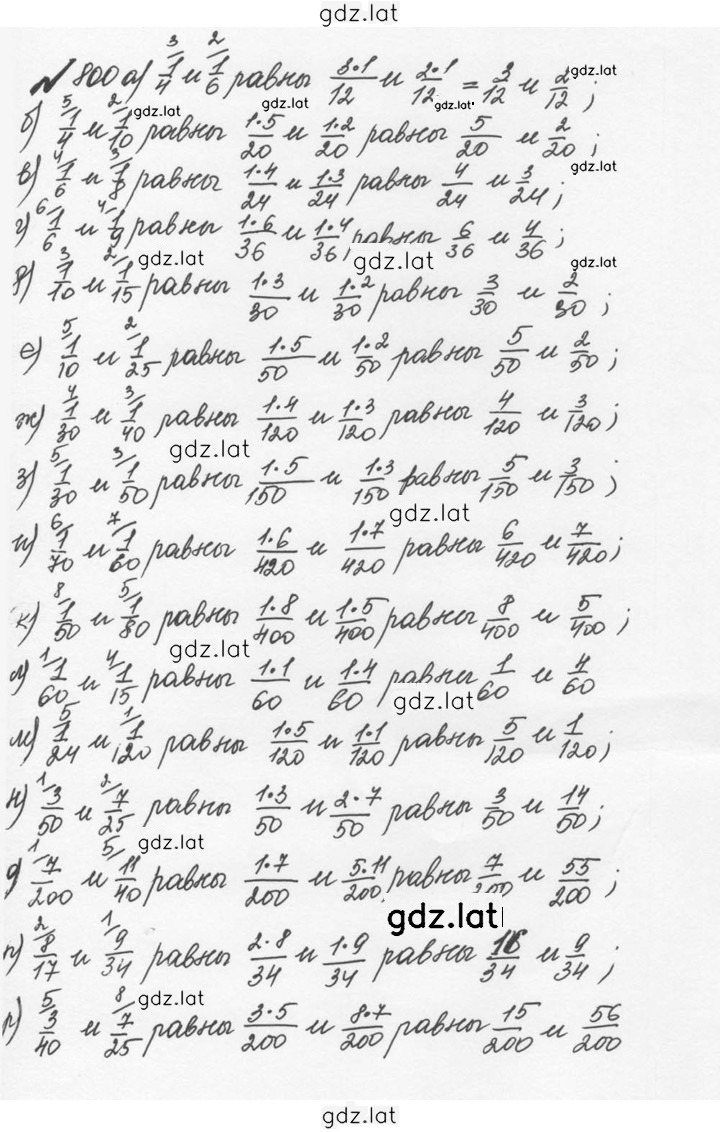 gdz.lat
№ 800 а) 3/ 1/4 и 2/ 1/6 равны 3·1/12 и 2·1/12 = 3/12 и 2/12;
б) 5/ 1/4 и 2/ 1/10 равны 1·5/20 и 1·2/20 равны 5/20 и 2/20;
в) 4/ 1/6 и 3/ 1/8 равны 1·4/24 и 1·3/24 равны 4/24 и 3/24;
г) 6/ 1/6 и 4/ 1/9 равны 1·6/36 и 1·4/36, равны 6/36 и 4/36;
д) 3/ 1/10 и 2/ 1/15 равны 1·3/30 и 1·2/30 равны 3/30 и 2/30;
е) 5/ 1/10 и 2/ 1/25 равны 1·5/50 и 1·2/50 равны 5/50 и 2/50;
ж) 4/ 1/30 и 3/ 1/40 равны 1·4/120 и 1·3/120 равны 4/120 и 3/120;
з) 5/ 1/30 и 3/ 1/50 равны 1·5/150 и 1·3/150 равны 5/150 и 3/150;
и) 6/ 1/70 и 7/ 1/60 равны 1·6/420 и 1·7/420 равны 6/420 и 7/420;
к) 8/ 1/50 и 5/ 1/80 равны 1·8/400 и 1·5/400 равны 8/400 и 5/400;
л) 1/ 1/60 и 4/ 1/15 равны 1·1/60 и 1·4/60 равны 1/60 и 4/60
м) 5/ 1/24 и 1/ 1/120 равны 1·5/120 и 1·1/120 равны 5/120 и 1/120;
н) 1/ 3/50 и 2/ 7/25 равны 1·3/50 и 2·7/50 равны 3/50 и 14/50;
о) 1/ 7/200 и 5/ 11/40 равны 1·7/200 и 5·11/200, равны 7/200 и 55/200;
п) 2/ 8/17 и 1/ 9/34 равны 2·8/34 и 1·9/34 равны 16/34 и 9/34;
р) 5/ 3/40 и 8/ 7/25 равны 3·5/200 и 8·7/200 равны 15/200 и 56/200
gdz.lat